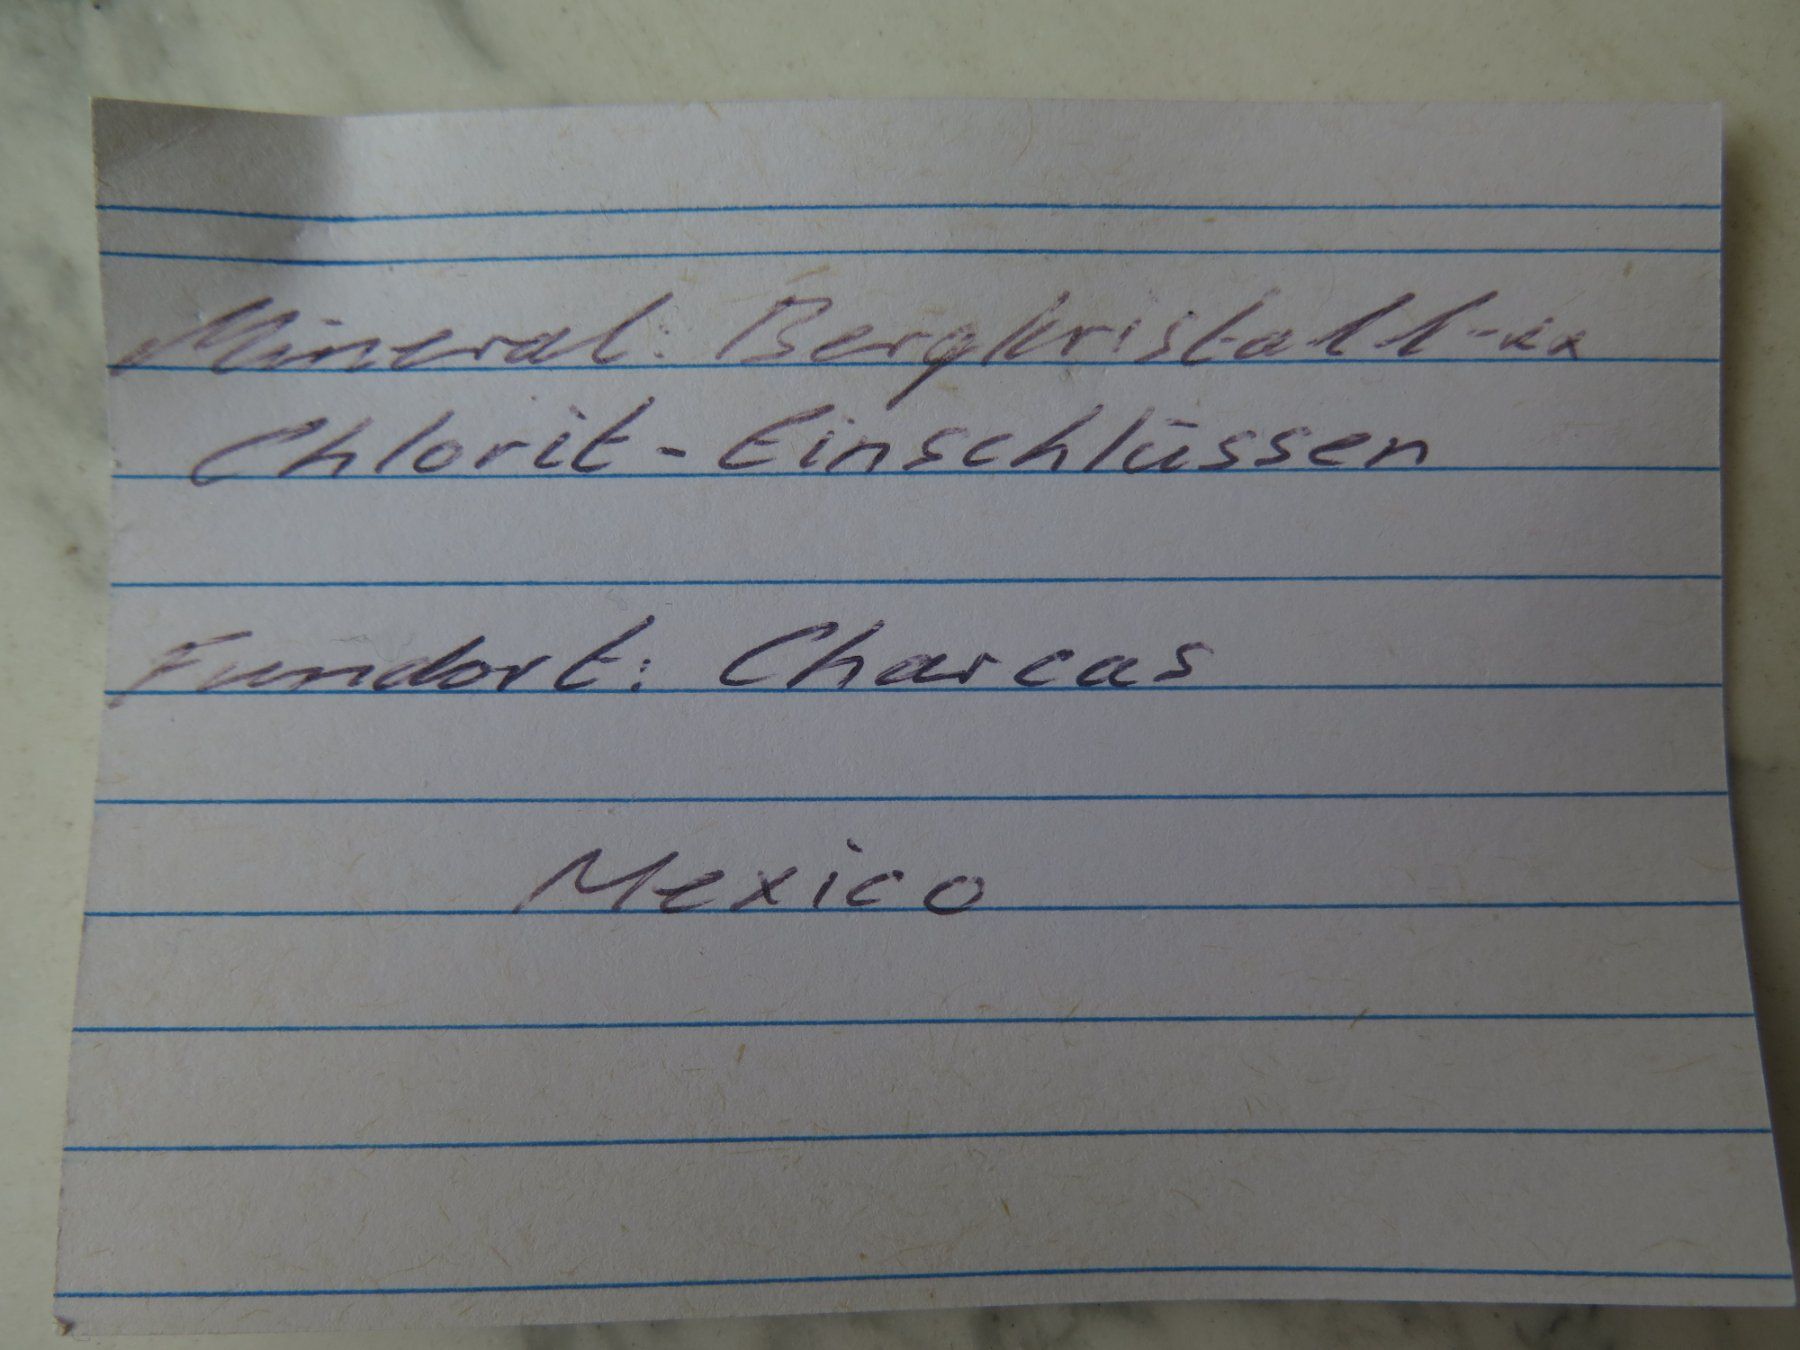 Mineral: Bergkristall-xx
Chlorit-Einschlüssen
Fundort: Charcas
Mexico